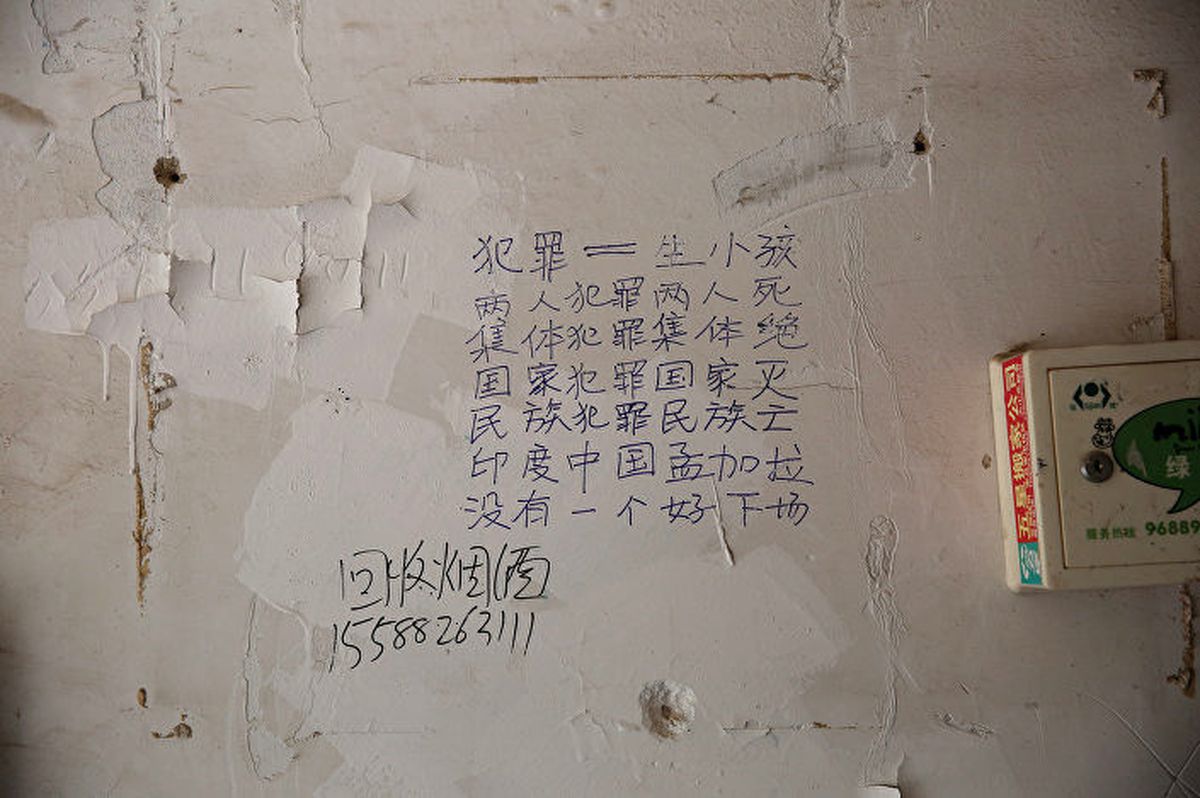 犯罪=生小孩
两人犯罪两人死
集体犯罪集体绝
国家犯罪国家灭
民族犯罪民族亡
印度中国孟加拉
没有一个好下场
回收烟酒
15588263111
绿
服务热线 96889